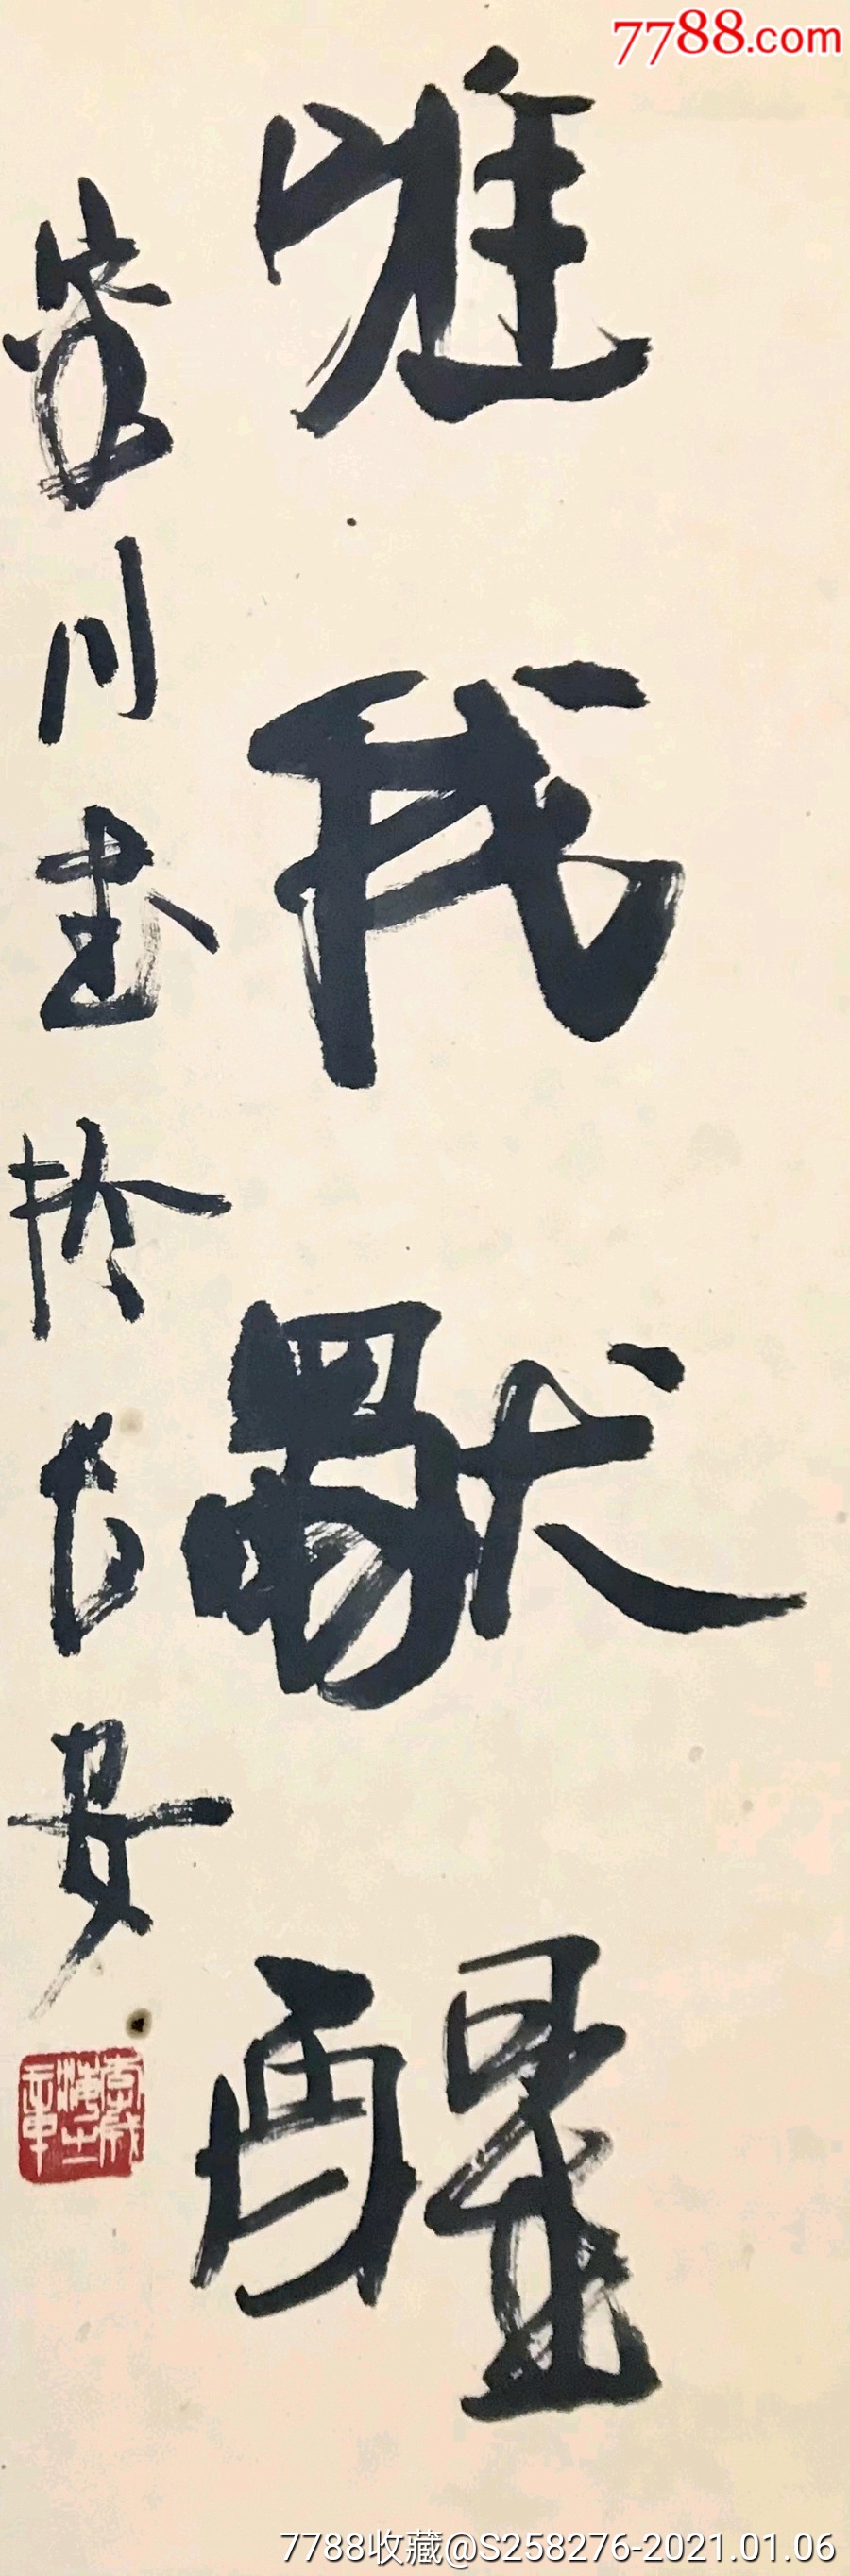 7788.com
唯我獨醒
川書於長安
7788收藏@S258276-2021.01.06